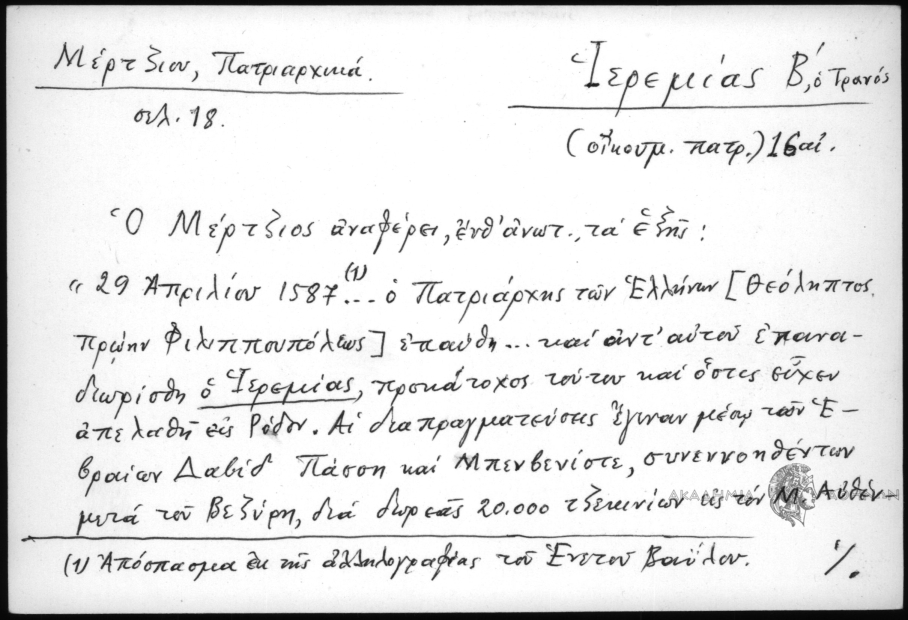 Μέρτζιου, Πατριαρχικά.
σελ. 18.
Ἱερεμίας Β΄, ὁ Τρανός
(οἰκουμ. πατρ.) 16 αἰ.
Ὁ Μέρτζιος ἀναφέρει, ἔνθ' ἀνωτ., τά ἑξῆς:
« 29 Ἀπριλίου 1587 (1)... ὁ Πατριάρχης τῶν Ἑλλήνων [Θεόληπτος,
πρώην Φιλιππουπόλεως] ἐπαύθη ... καί ἀντ' αὐτοῦ ἐπανα-
διωρίσθη ὁ Ἱερεμίας, προκάτοχος τούτου καί ὅστις εἶχεν
ἀπελαθῆ εἰς Ρόδον. Αἱ διαπραγματεύσεις ἔγιναν μέσῳ τῶν Ἑ-
βραίων Δαβίδ Πάσση καί Μπενβενίστε, συνεννοηθέντων
μετά τοῦ Βεζύρη, διά δωρεᾶς 20.000 τζεκινίων εἰς τόν Μ. Αὐθέν-
(1) Ἀπόσπασμα ἐκ τῆς ἀλληλογραφίας τοῦ Ἑνετοῦ Βαΐλου.
·/.
ΑΚΑΔΗΜΙΑ